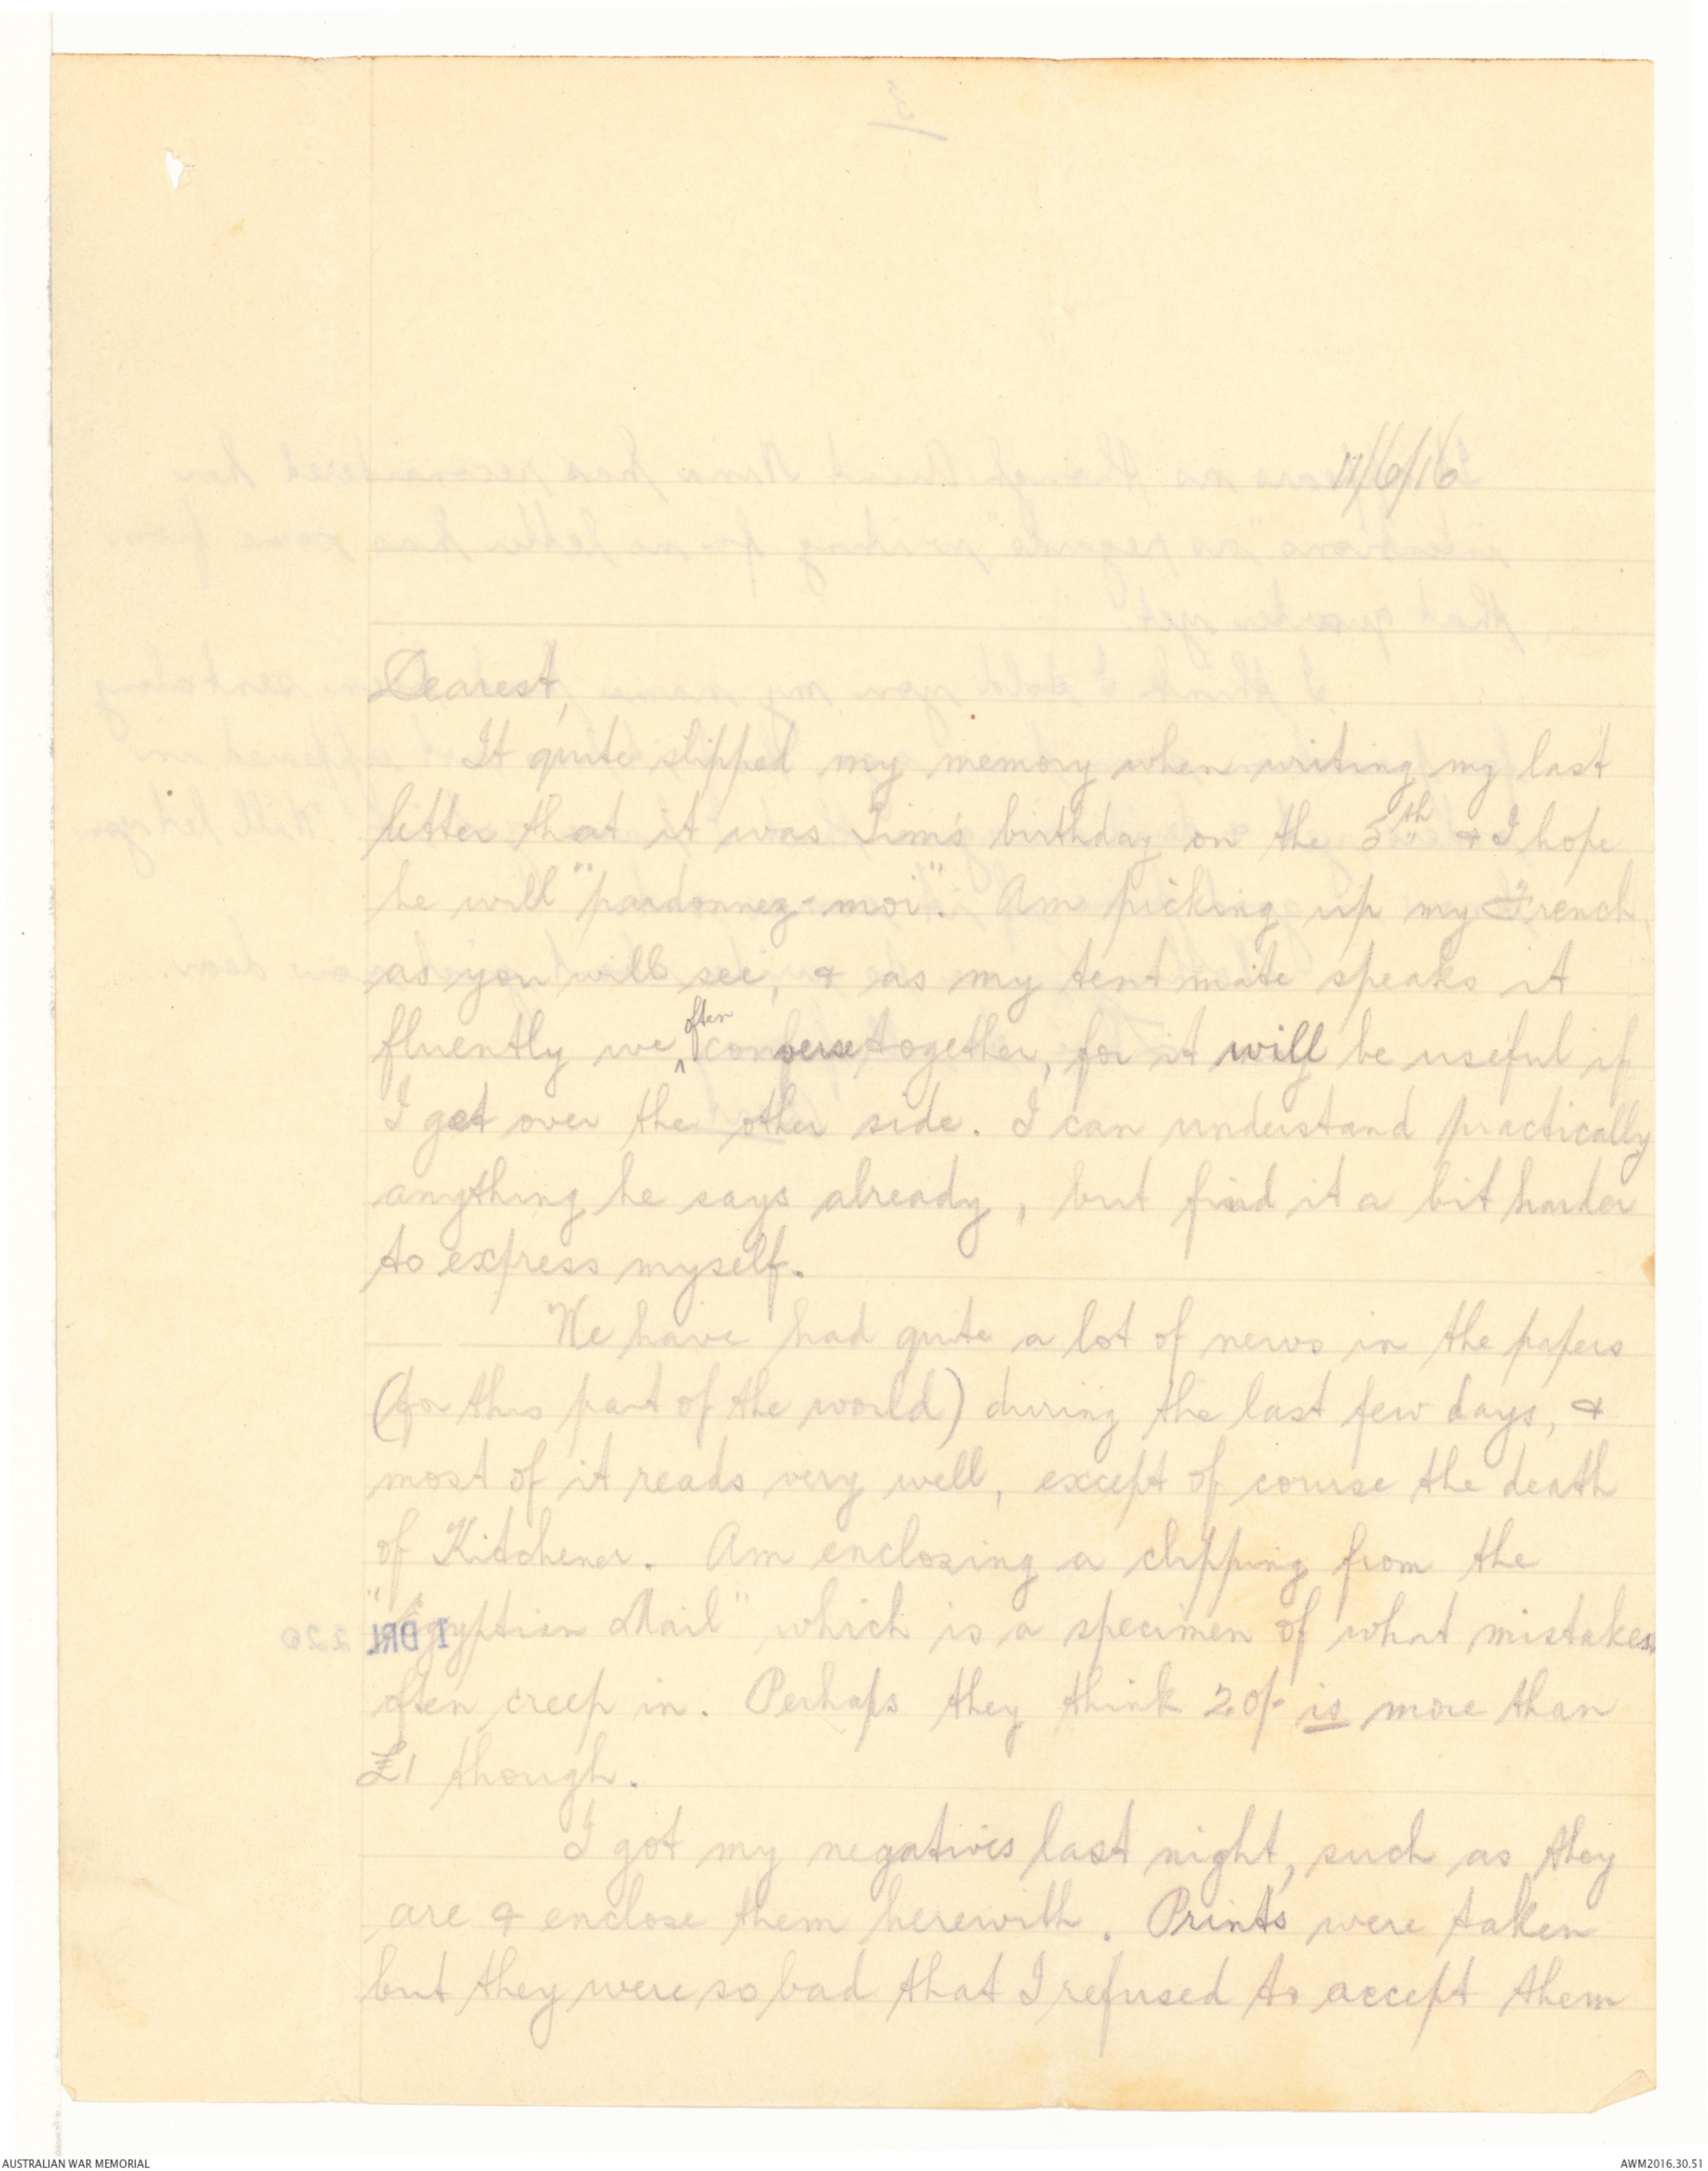 11/6/16
Dearest,
It quite slipped my memory when writing my last
letter that it was Jim's birthday on the 5th & I hope
he will "pardonnez-moi". Am picking up my French,
as you will see, & as my tent mate speaks it
fluently we often converse together, for it will be useful if
I get over the other side. I can understand practically
anything he says already, but find it a bit harder
to express myself.
We have had quite a lot of news in the papers
(for this part of the world) during the last few days, &
most of it reads very well, except of course the death
of Kitchener. Am enclosing a clipping from the
"Egyptian Mail" which is a specimen of what mistakes
often creep in. Perhaps they think 20/- is more than
£1 though.
I got my negatives last night, such as they
are & enclose them herewith. Prints were taken
but they were so bad that I refused to accept them
AUSTRALIAN WAR MEMORIAL
AWM2016.30.51